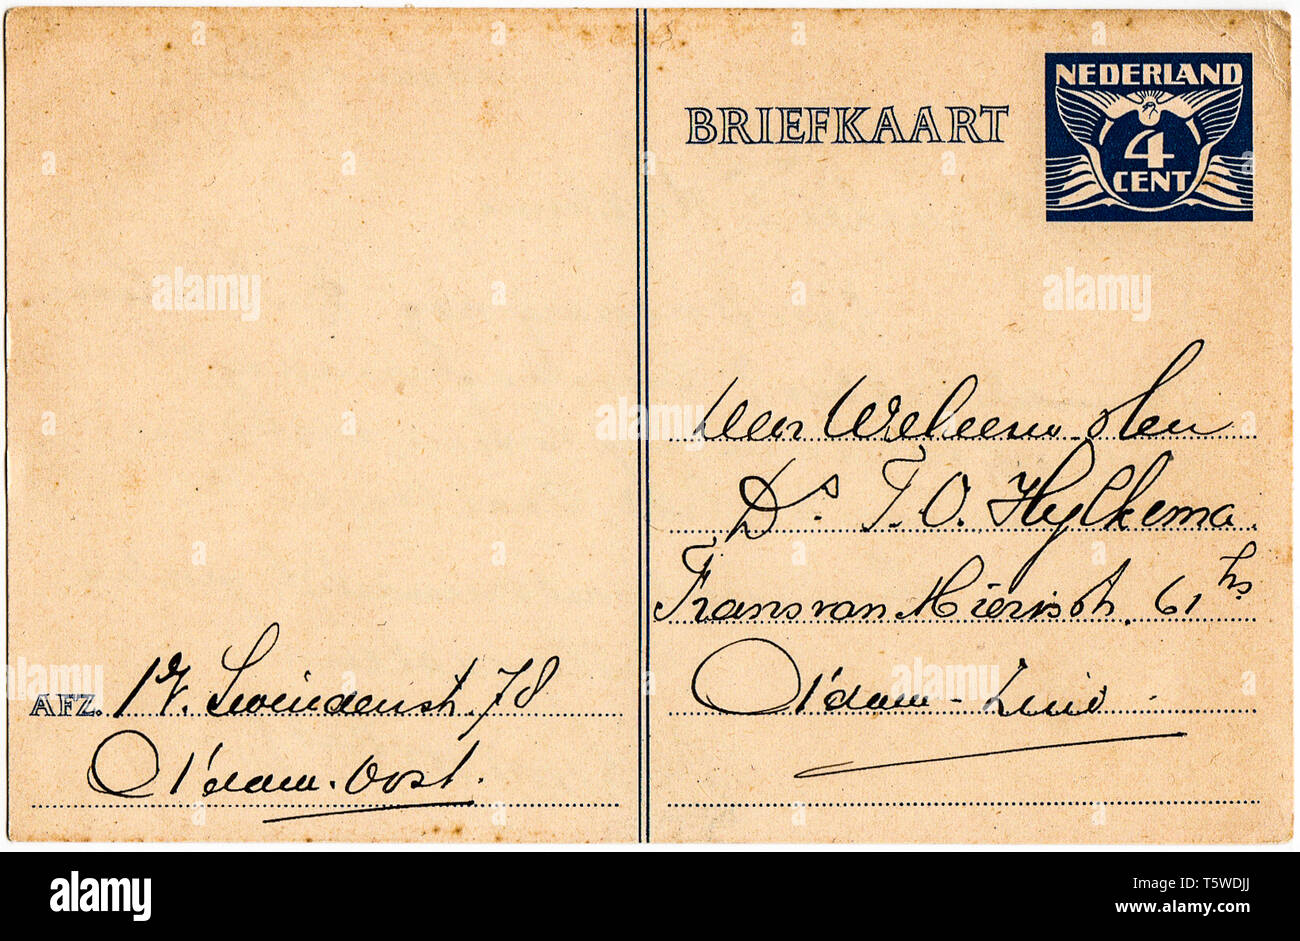 NEDERLAND
4
CENT
BRIEFKAART
Den Weleerw. Heer
Ds. T. O. Hylkema
Frans van Mierisstr. 61 hs
A'dam-Zuid
AFZ. Swindenstr. 78
A'dam-Oost.
alamy
Image ID: T5WDJJ
www.alamy.com